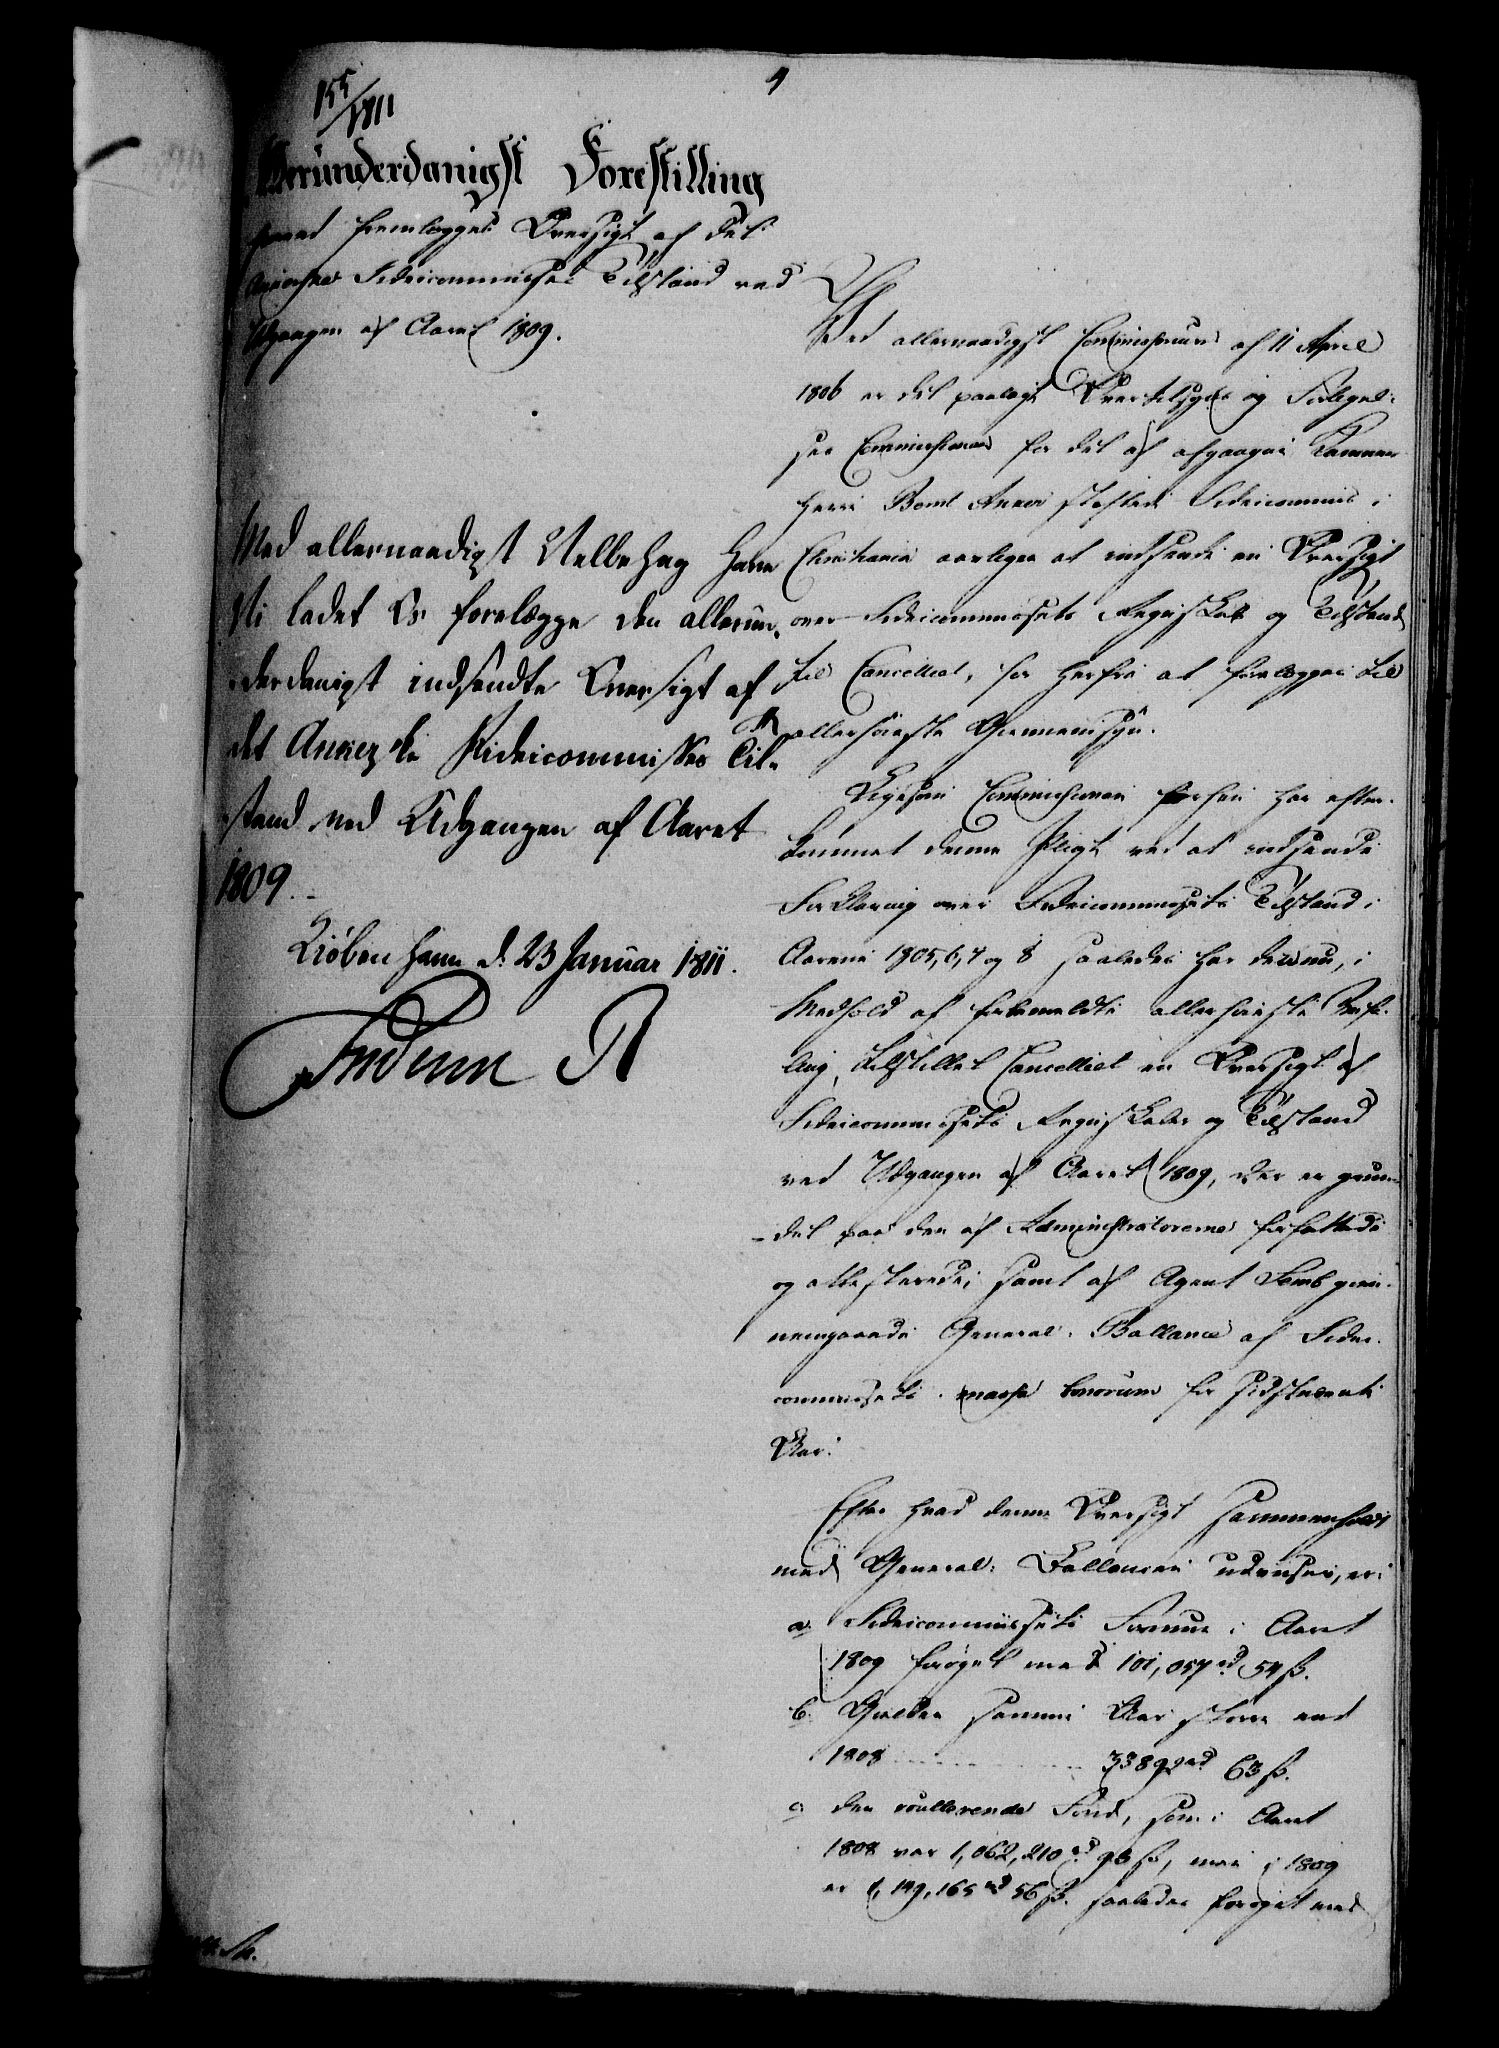 4
155/1811
Allerunderdanigst Forestilling
hvorved fremlægges Oversigt af det
Ankerske Fideicommisses Tilstand ved
Udgangen af Aaret 1809.
Med allernaadigst Velbehag have
Vi ladet Os forelægge den allerun-
derdanigst indsendte Oversigt af
det Ankerske Fideicommisses Til-
stand ved Udgangen af Aaret
1809.
Kiøbenhavn d. 23 Januar 1811.
Frederik R
Ved allernaadigst Commissorium af 11 April
1806 er det paalagt Overtilsyns og Bestyrel-
ses Commissionen for det af afgangne Kammer
herre Bernt Anker stiftede Fideicommis i
Christiania aarligen at indsende en Oversigt
over Fideicommissets Regnskab og Tilstand
til Cancelliet, for herfra at forelægges til
allerhøieste Giennemsyn.
Ligesom Commissionen forhen har efter-
kommet denne Pligt ved at indsende
Forklaring over Fideicommissets Tilstand i
Aarene 1805, 6, 7 og 8 saaledes har den nu, i
Medhold af forbemeldte allerhøieste Befa-
ling, tilstillet Cancelliet en Oversigt af
Fideicommissets Regnskaber og Tilstand
ved Udgangen af Aaret 1809, der er grun-
det paa den af Administratorerne forfattede
og attesterede, samt af Agent gien-
nemgaaede General-Ballance af Fidei-
commissets massa bonorum for sidstnævnte
Aar.
Efter hvad denne Oversigt sammenholdt
med General-Ballancen udviser, er:
a. Fideicommissets Formue i Aaret
1809 forøget med 101,057 rd 54 ß.
b. Gielden samme Aar større end
1808 - - - 33892 rd 63 ß.
c. den roullerende Fond, som i Aaret
1808 var 1,062,210 rd 93 ß, men i 1809
er 1,149,165 rd 56 ß. saaledes forøget med